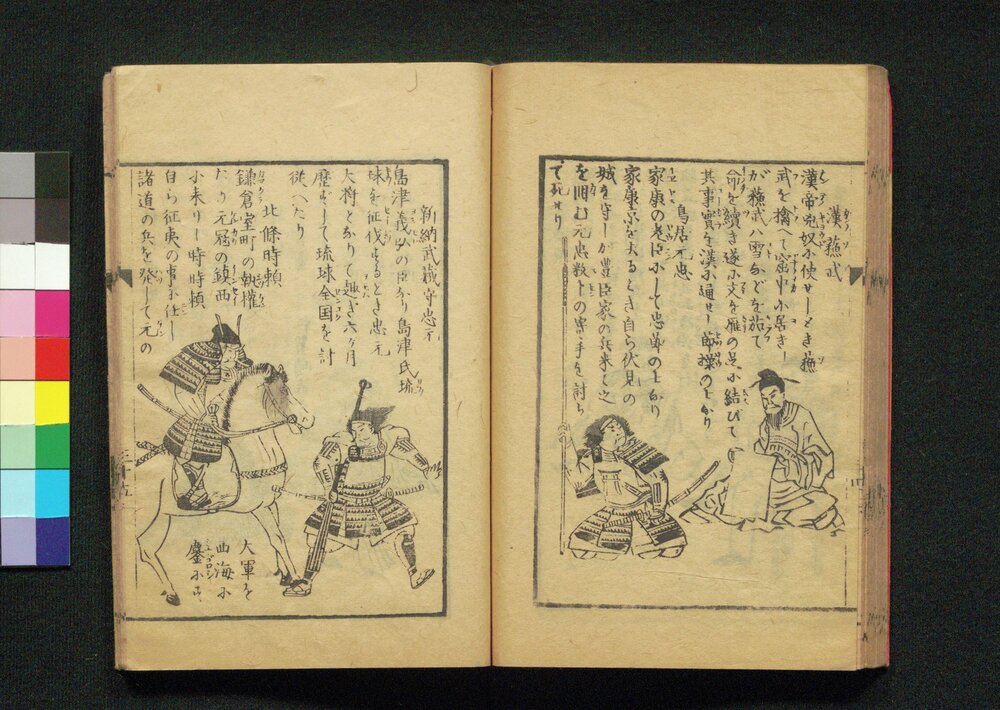 漢蘓武
漢帝兇奴に使せしとき蘓
武を擒へて窟中に居き
が蘓武ハ雪などを茹て
命を續き遂に文を雁の足に結びて
其事實を漢に通せし節操の士なり
鳥居元忠
家康の老臣にして忠勇の士なり
家康京を去るとき自ら伏見の
城を守しが豊臣家の兵来て之
を囲む元忠数十の寄手を討ち
て死せり
新納武蔵守忠元
島津義久の臣なり島津氏琉
球を征伐するとき忠元
大将となりて趣き六ヶ月
歴ずして琉球全国を討
従へたり
北條時頼
鎌倉室町の執權
たり元冦の鎮西
に来りし時時頼
自ら征夷の事に任し
諸道の兵を発して元の
大軍を
西海に
鏖にす